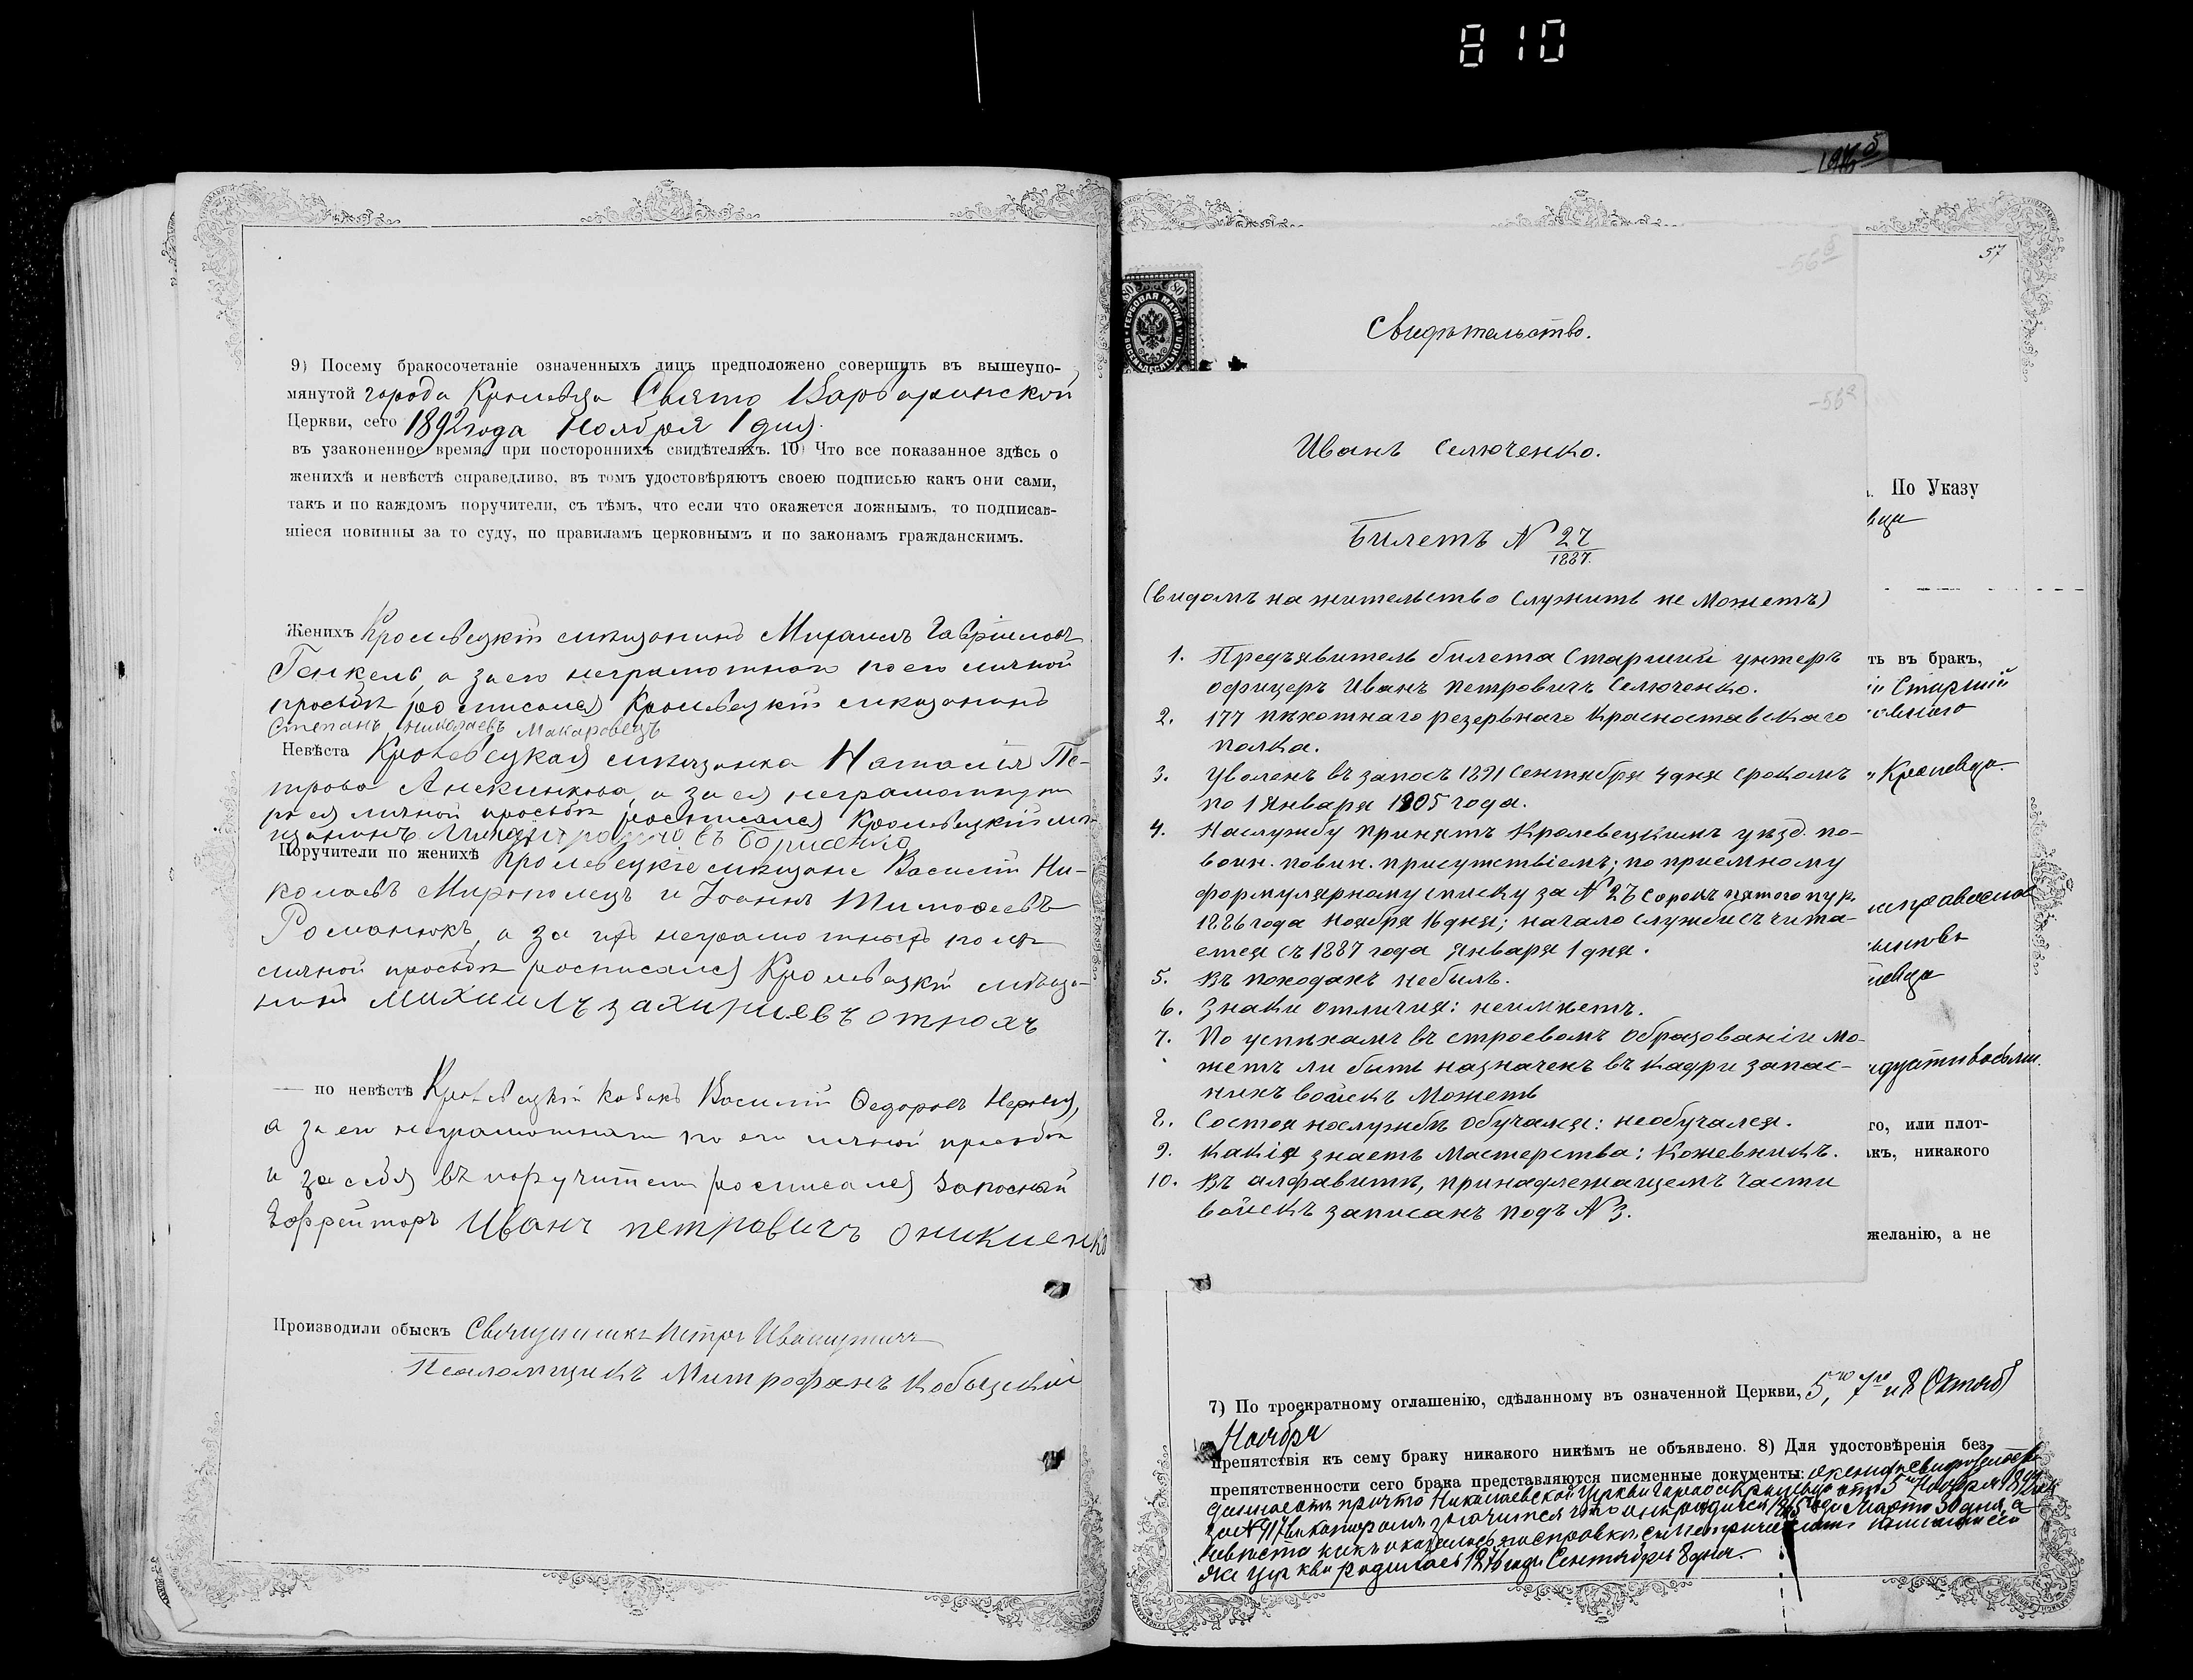 810
9) Посему бракосочетаніе означенныхъ лицъ предположено совершить въ вышеупо-
мянутой города Кролевца Свято Варваринской
Церкви, сего 1892 года Ноября 1 дня.
въ узаконенное время, при постороннихъ свидѣтеляхъ. 10) Что все показанное здѣсь о
женихѣ и невѣстѣ справедливо, въ томъ удостовѣряютъ своею подписью какъ они сами,
такъ и по каждомъ поручители, съ тѣмъ, что если что окажется ложнымъ, то подписав-
шіеся повинны за то суду, по правиламъ церковнымъ и по законамъ гражданскимъ.
Женихъ Кролевецкій мѣщанинъ Михаилъ Гавріиловъ
Генкель, а за его неграмотного по его личной
просьбѣ росписался Кролевецкій мѣщанинъ
Степанъ Николаевъ Макаровецъ
Невѣста Кролевецкая мѣщанка Наталія Пе-
трова, а за ея неграмотную
по ея личной просьбѣ росписался Кролевецкій мѣ-
щанинъ Борисенко
Поручители по женихѣ Кролевецкіе мѣщане Василій Ни-
колаевъ Мирополецъ и Іоаннъ Тимофеевъ
Романюкъ, а за ихъ неграмотныхъ по ихъ
личной просьбѣ росписался Кролевецкій мѣща-
нинъ Михаилъ Захариевъ Отрохъ
— по невѣстѣ Кролевецкій козакъ Василій Федоровъ
а за его неграмотнаго по его личной просьбѣ
и за себя въ поручители росписался Запасный
Ефрейторъ Иванъ Петровичъ Оникиенко
Производили обыскъ Священникъ Петръ Ивашутичъ
Псаломщикъ Митрофанъ Кобыцкій
57
-56б
Свидѣтельство.
-56а
Иванъ Селюченко.
Билетъ № 27
1887.
(видомъ на жительство служить не можетъ)
1. Предъявитель билета Старшій унтеръ
офицеръ Иванъ Петровичъ Селюченко.
2. 177 пѣхотнаго резервнаго Красноставскаго
полка.
3. Уволенъ въ запасъ 1891 Сентября 4 дня срокомъ
по 1 Января 1905 года.
4. На службу принятъ Кролевецкимъ уѣзд. по-
воин. повин. присутствіемъ; по приемному
формулярному списку за № 27
1886 года Ноября 16 дня; начало службы счита-
ется съ 1887 года Января 1 дня.
5. Въ походахъ небылъ.
6. Знаки отличия: неимѣетъ.
7. По успѣхамъ въ строевомъ образованіи мо-
жетъ ли быть назначенъ въ кадри запас-
ныхъ войскъ Можетъ
8. Состоя наслужбѣ обучался: необучался.
9. Какія знаетъ мастерства: Кожевникъ.
10. Въ алфавитѣ, принадлежащемъ части
войскъ записанъ подъ № 3.
По Указу
ть въ бракъ,
Старшій
Кролевца.
го, или плот-
акъ, никакого
желанію, а не
7) По троекратному оглашенію, сдѣланному въ означенной Церкви, 5, 7 и 8
Ноября
препятствія къ сему браку никакого никѣмъ не объявлено. 8) Для удостовѣренія без-
препятственности сего брака представляются писменные документы:
данное отъ причта Николаевской Церкви города Кролевца отъ 5 Ноября
за № 917 въ которомъ значится что онъ родился 1865 года Марта 30 дня, а
невѣста какъ оказалось по справкѣ
же церкви родилась 1876 года Сентября 8 дня.